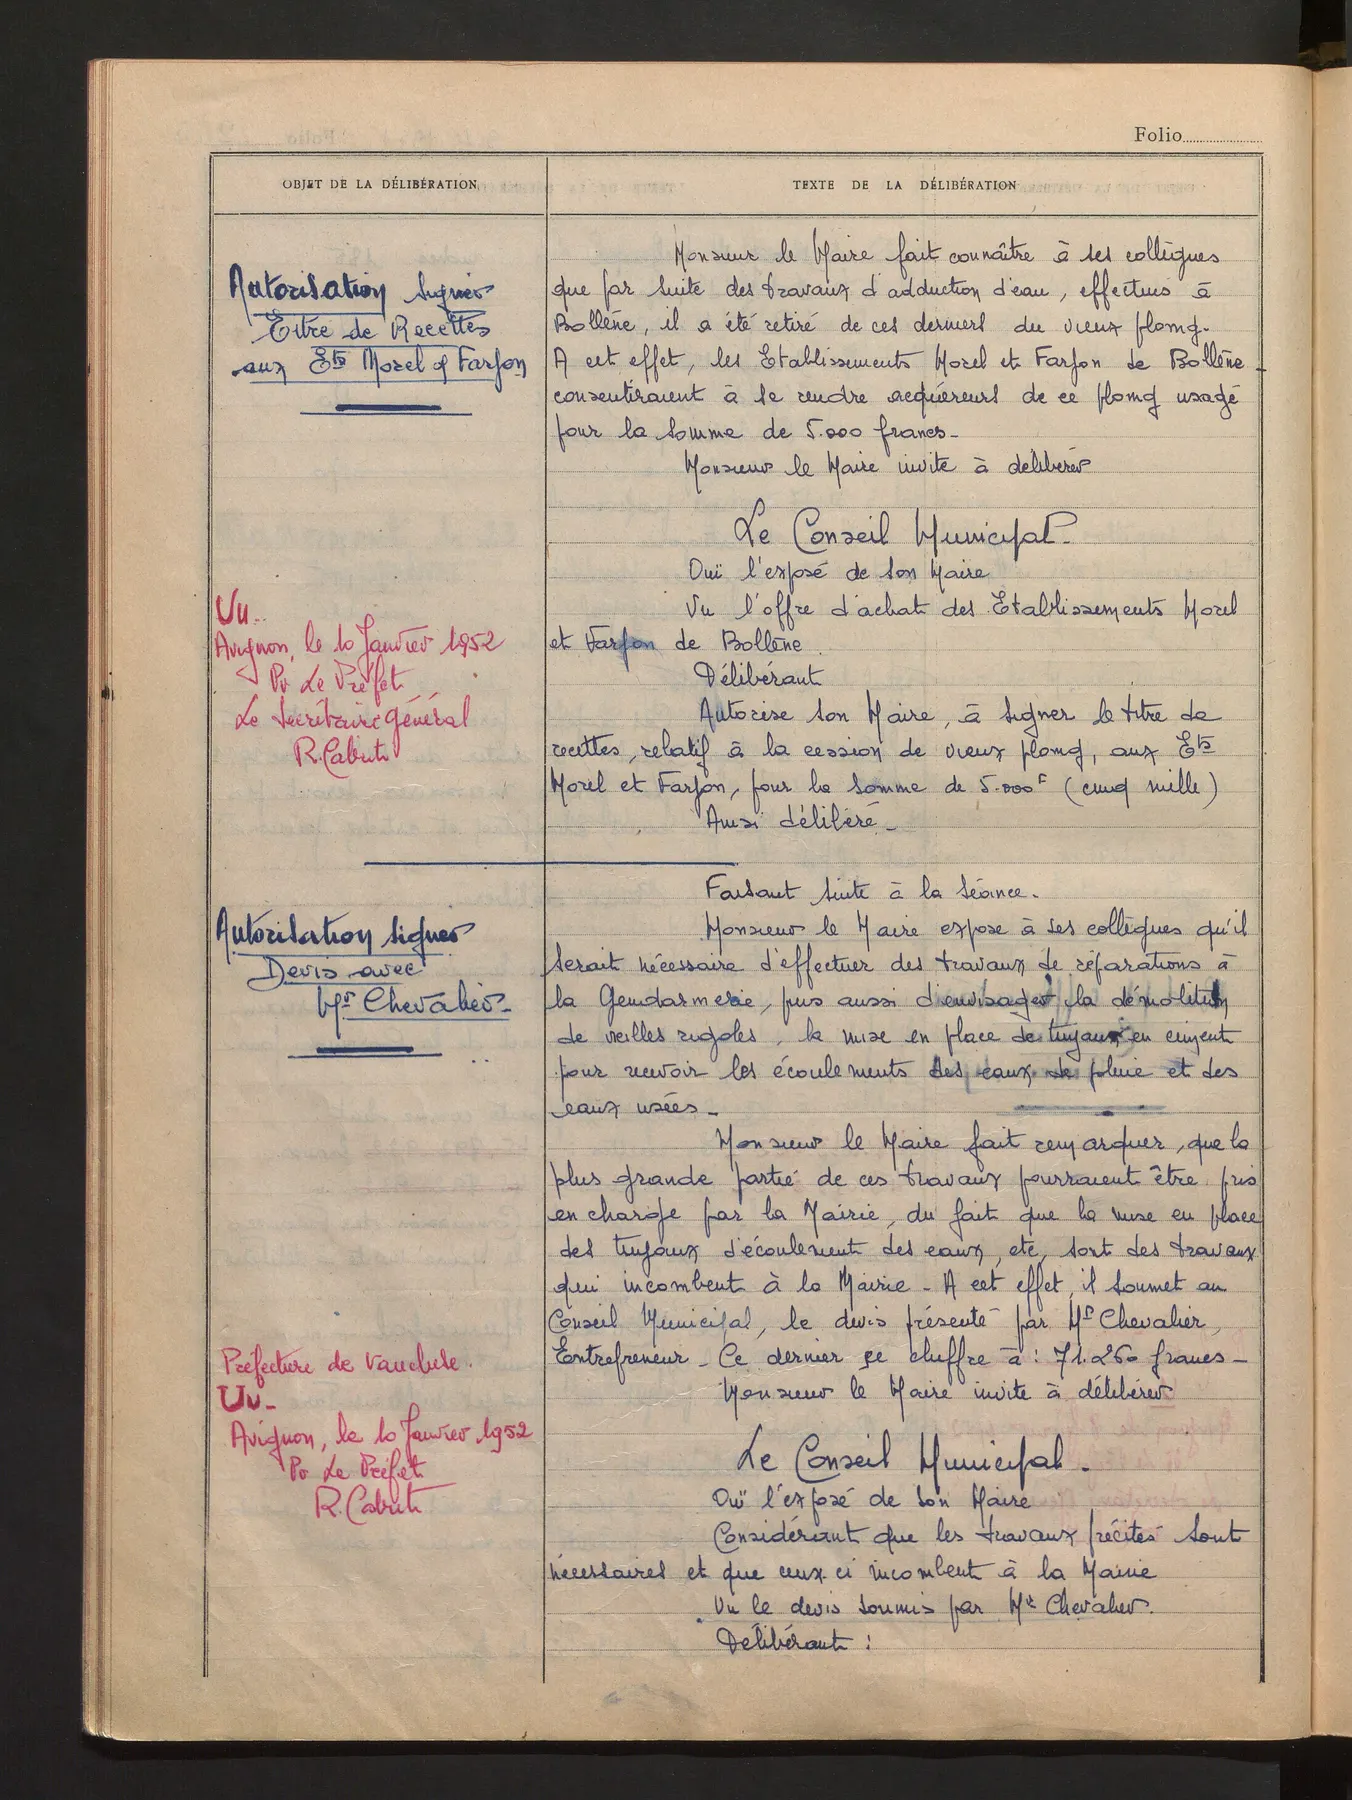 Folio
OBJET DE LA DÉLIBÉRATION
TEXTE DE LA DÉLIBÉRATION
Autorisation signer
Titre de Recettes
aux Ets Morel & Farjon
Monsieur le Maire fait connaître à ses collègues
que par suite des travaux d'adduction d'eau, effectués à
Bollène, il a été retiré de ces derniers du vieux plomg.
A cet effet, les Etablissements Morel et Farjon de Bollène
consentiraient à se rendre acquéreurs de ce plomg usagé
pour la somme de 5.000 francs_
Monsieur le Maire invite à délibérer
Le Conseil Municipal_
Ouï l'exposé de son Maire
Vu l'offre d'achat des Etablissements Morel
et Farjon de Bollène.
Délibérant
Autorise son Maire, à signer le titre de
recettes, relatif à la cession de vieux plomg, aux Ets
Morel et Farjon, pour la somme de 5.000f (cinq mille)
Ainsi délibéré_
Vu_
Avignon, le 10 Janvier 1952
Pr Le Préfet
Le Secrétaire Général
R. Cabrit
Autorisation signer
Devis avec
Mr Chevalier_
Faisant suite à la séance.
Monsieur le Maire expose à ses collègues qu'il
serait nécessaire d'effectuer des travaux de réparations à
la Gendarmerie, puis aussi d'envisager la démolition
de vieilles rigoles, la mise en place de tuyaux en ciment
pour recevoir les écoulements des eaux de pluie et des
eaux usées_
Monsieur le Maire fait remarquer, que la
plus grande partie de ces travaux pourraient être pris
en charge par la Mairie, du fait que la mise en place
des tuyaux d'écoulement des eaux, etc, sont des travaux
qui incombent à la Mairie_ A cet effet, il soumet au
Conseil Municipal, le devis présenté par Mr Chevalier,
Entrepreneur_ Ce dernier se chiffre à : 71.260 francs_
Monsieur le Maire invite à délibérer
Le Conseil Municipal_
Ouï l'exposé de son Maire
Considérant que les travaux précités sont
nécessaires et que ceux ci incombent à la Mairie
Vu le devis soumis par Mr Chevalier.
Délibérant :
Préfecture de Vaucluse.
Vu_
Avignon, le 10 Janvier 1952
Pr Le Préfet
R. Cabrit